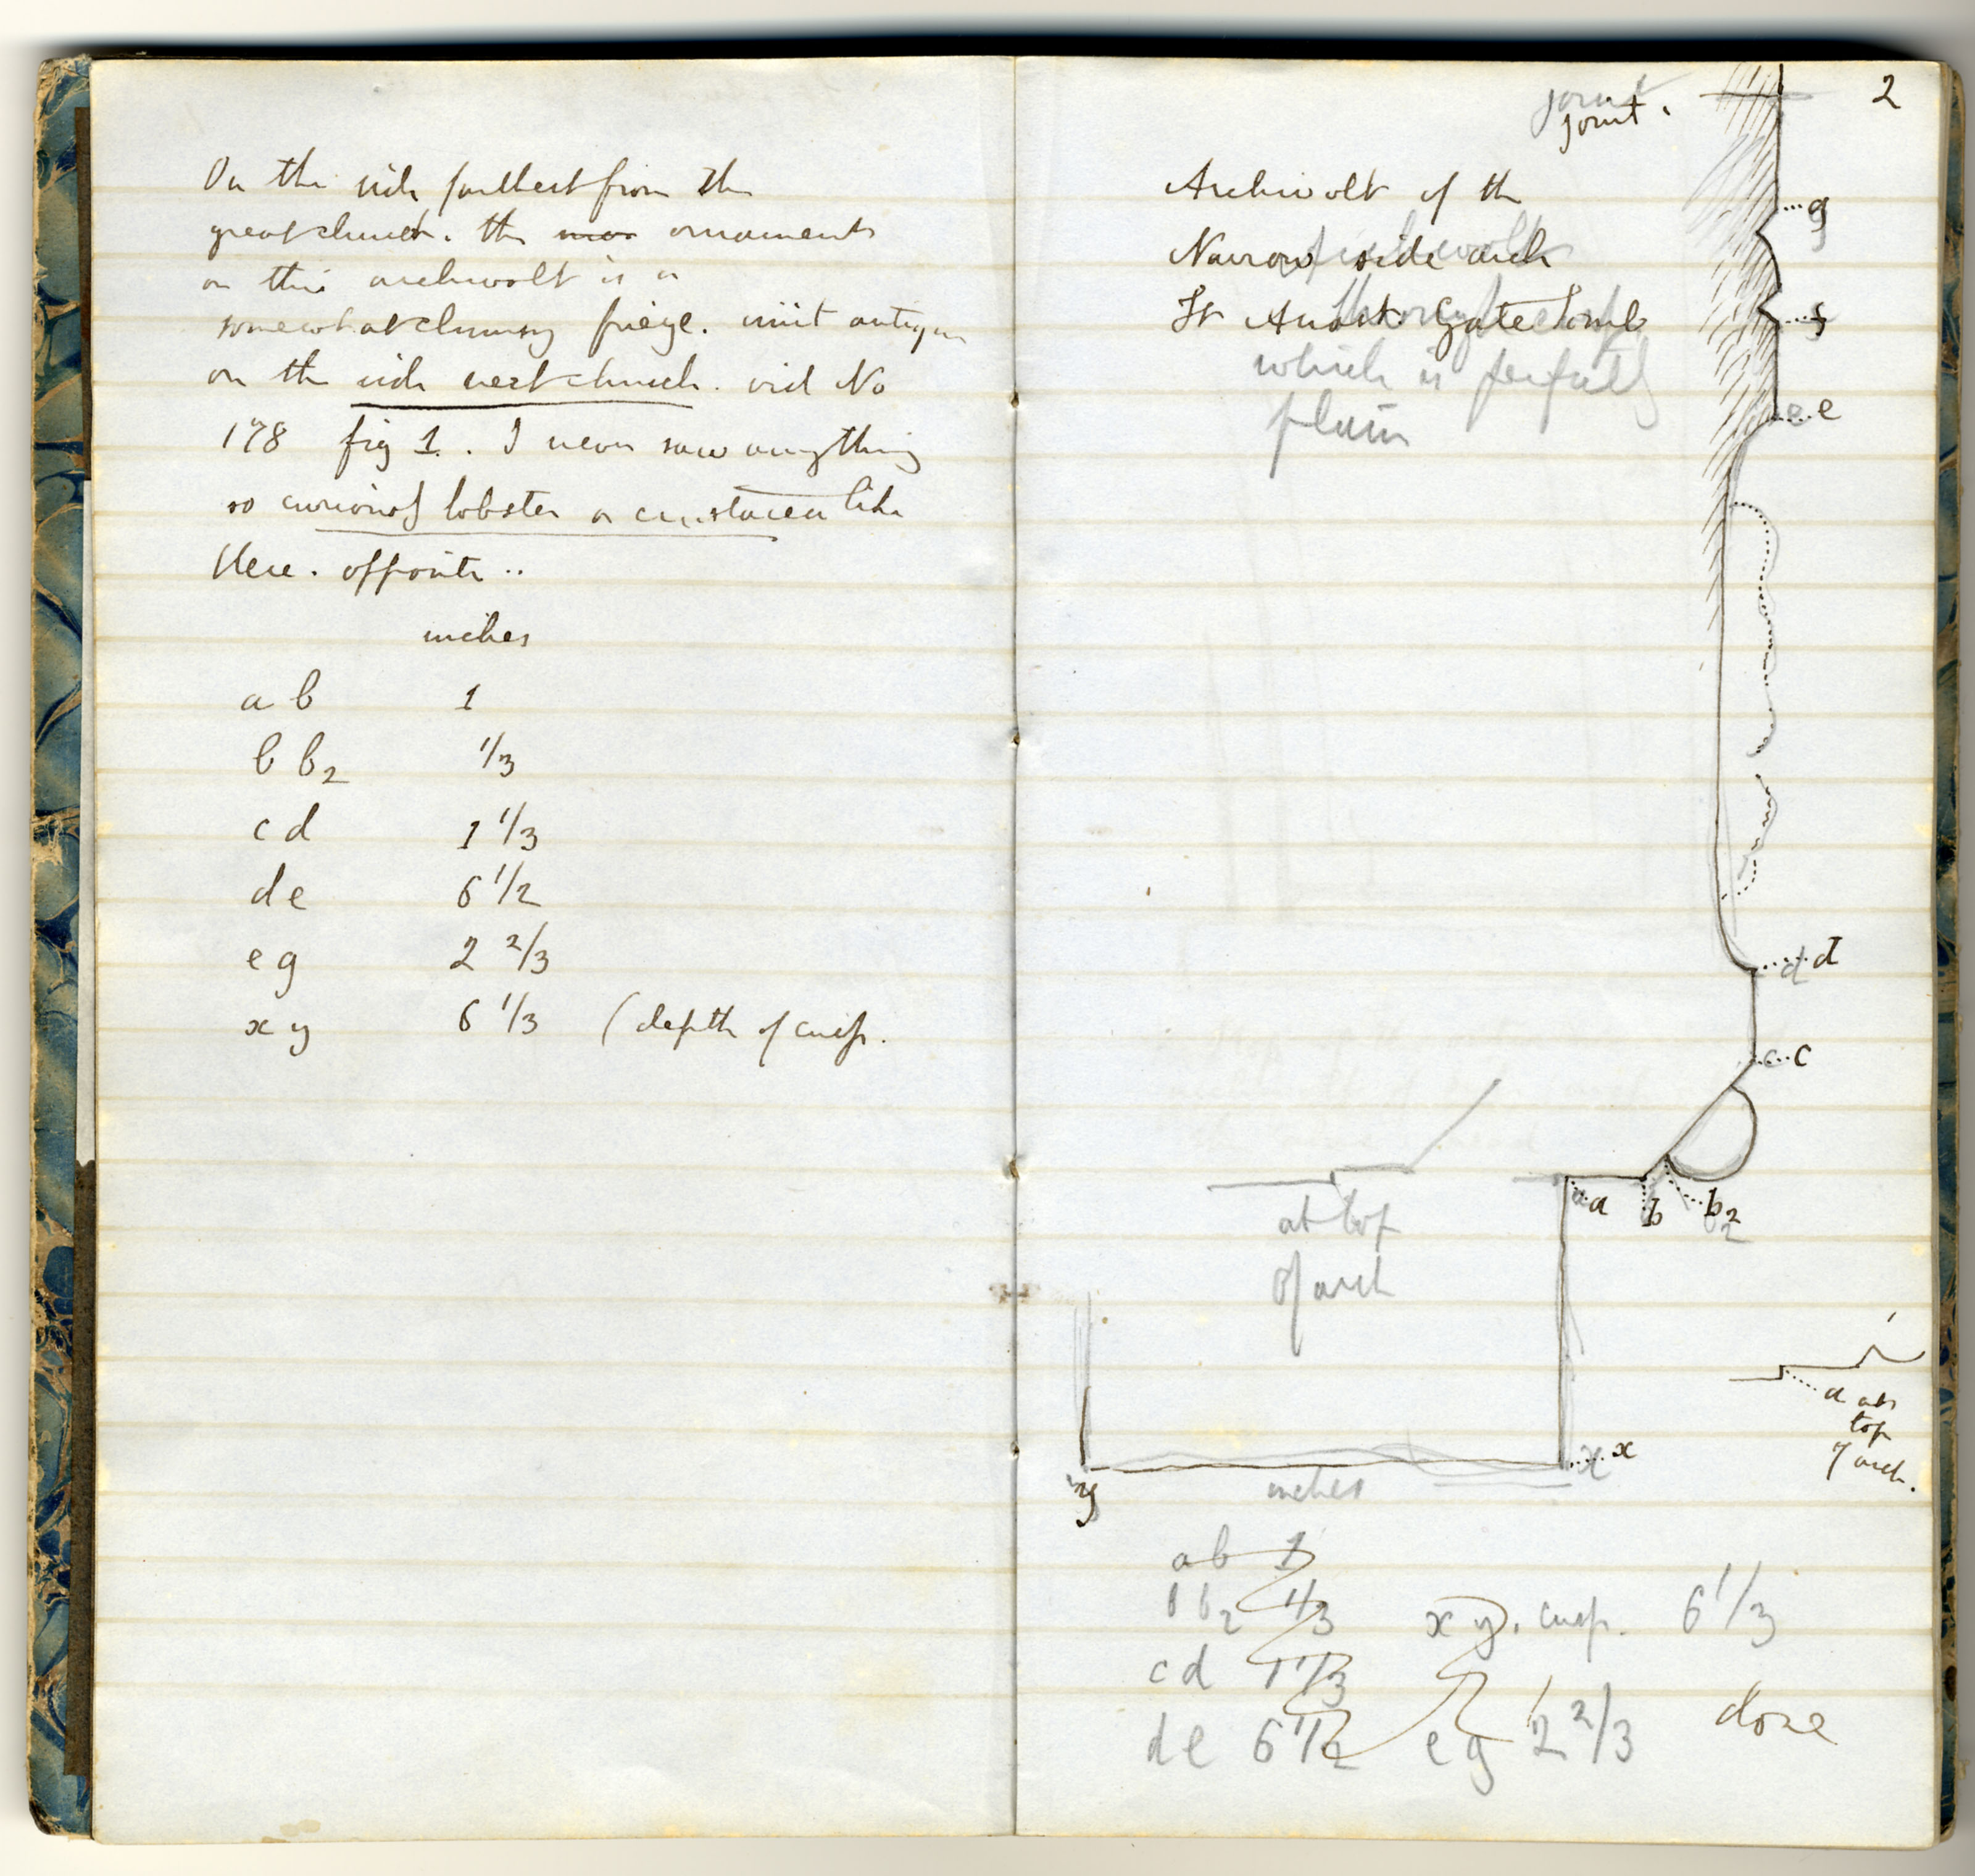 On the side farthest from the
great church. the mor ornaments
on this archivolt is a
somewhat clumsy frieze. imit antique
on the side next church. vid No
178 fig 1. I never saw anything
so curiously lobster or crustacea like
Here. opposite ..
inches
a b 1
b b2 1/3
c d 1 1/3
d e 6 1/2
e g 2 2/3
x y 6 1/3 (depth of cusp.
2
joint
joint.
Archivolt of the
Narrow side arch
St Anast. Gate Tomb
which is perfectly
plain
g
f
e e
d d
c c
a a b b2
2
at top
of arch
a at
top
of arch.
x x
y
inches
ab 1
b b2 1/3 x y. cusp. 6 1/3
c d 1 1/3
de 6 1/2 e g 2 2/3 done